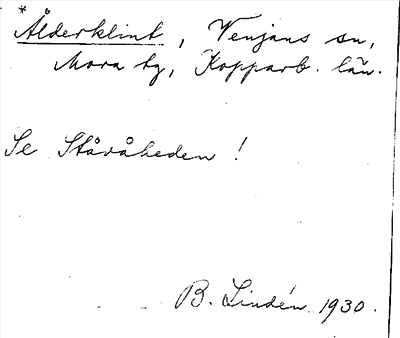 * Ålderklint, Venjans sn,
Mora tg, Kopparb. län.
Se Ståråheden!
B. Lindén 1930.